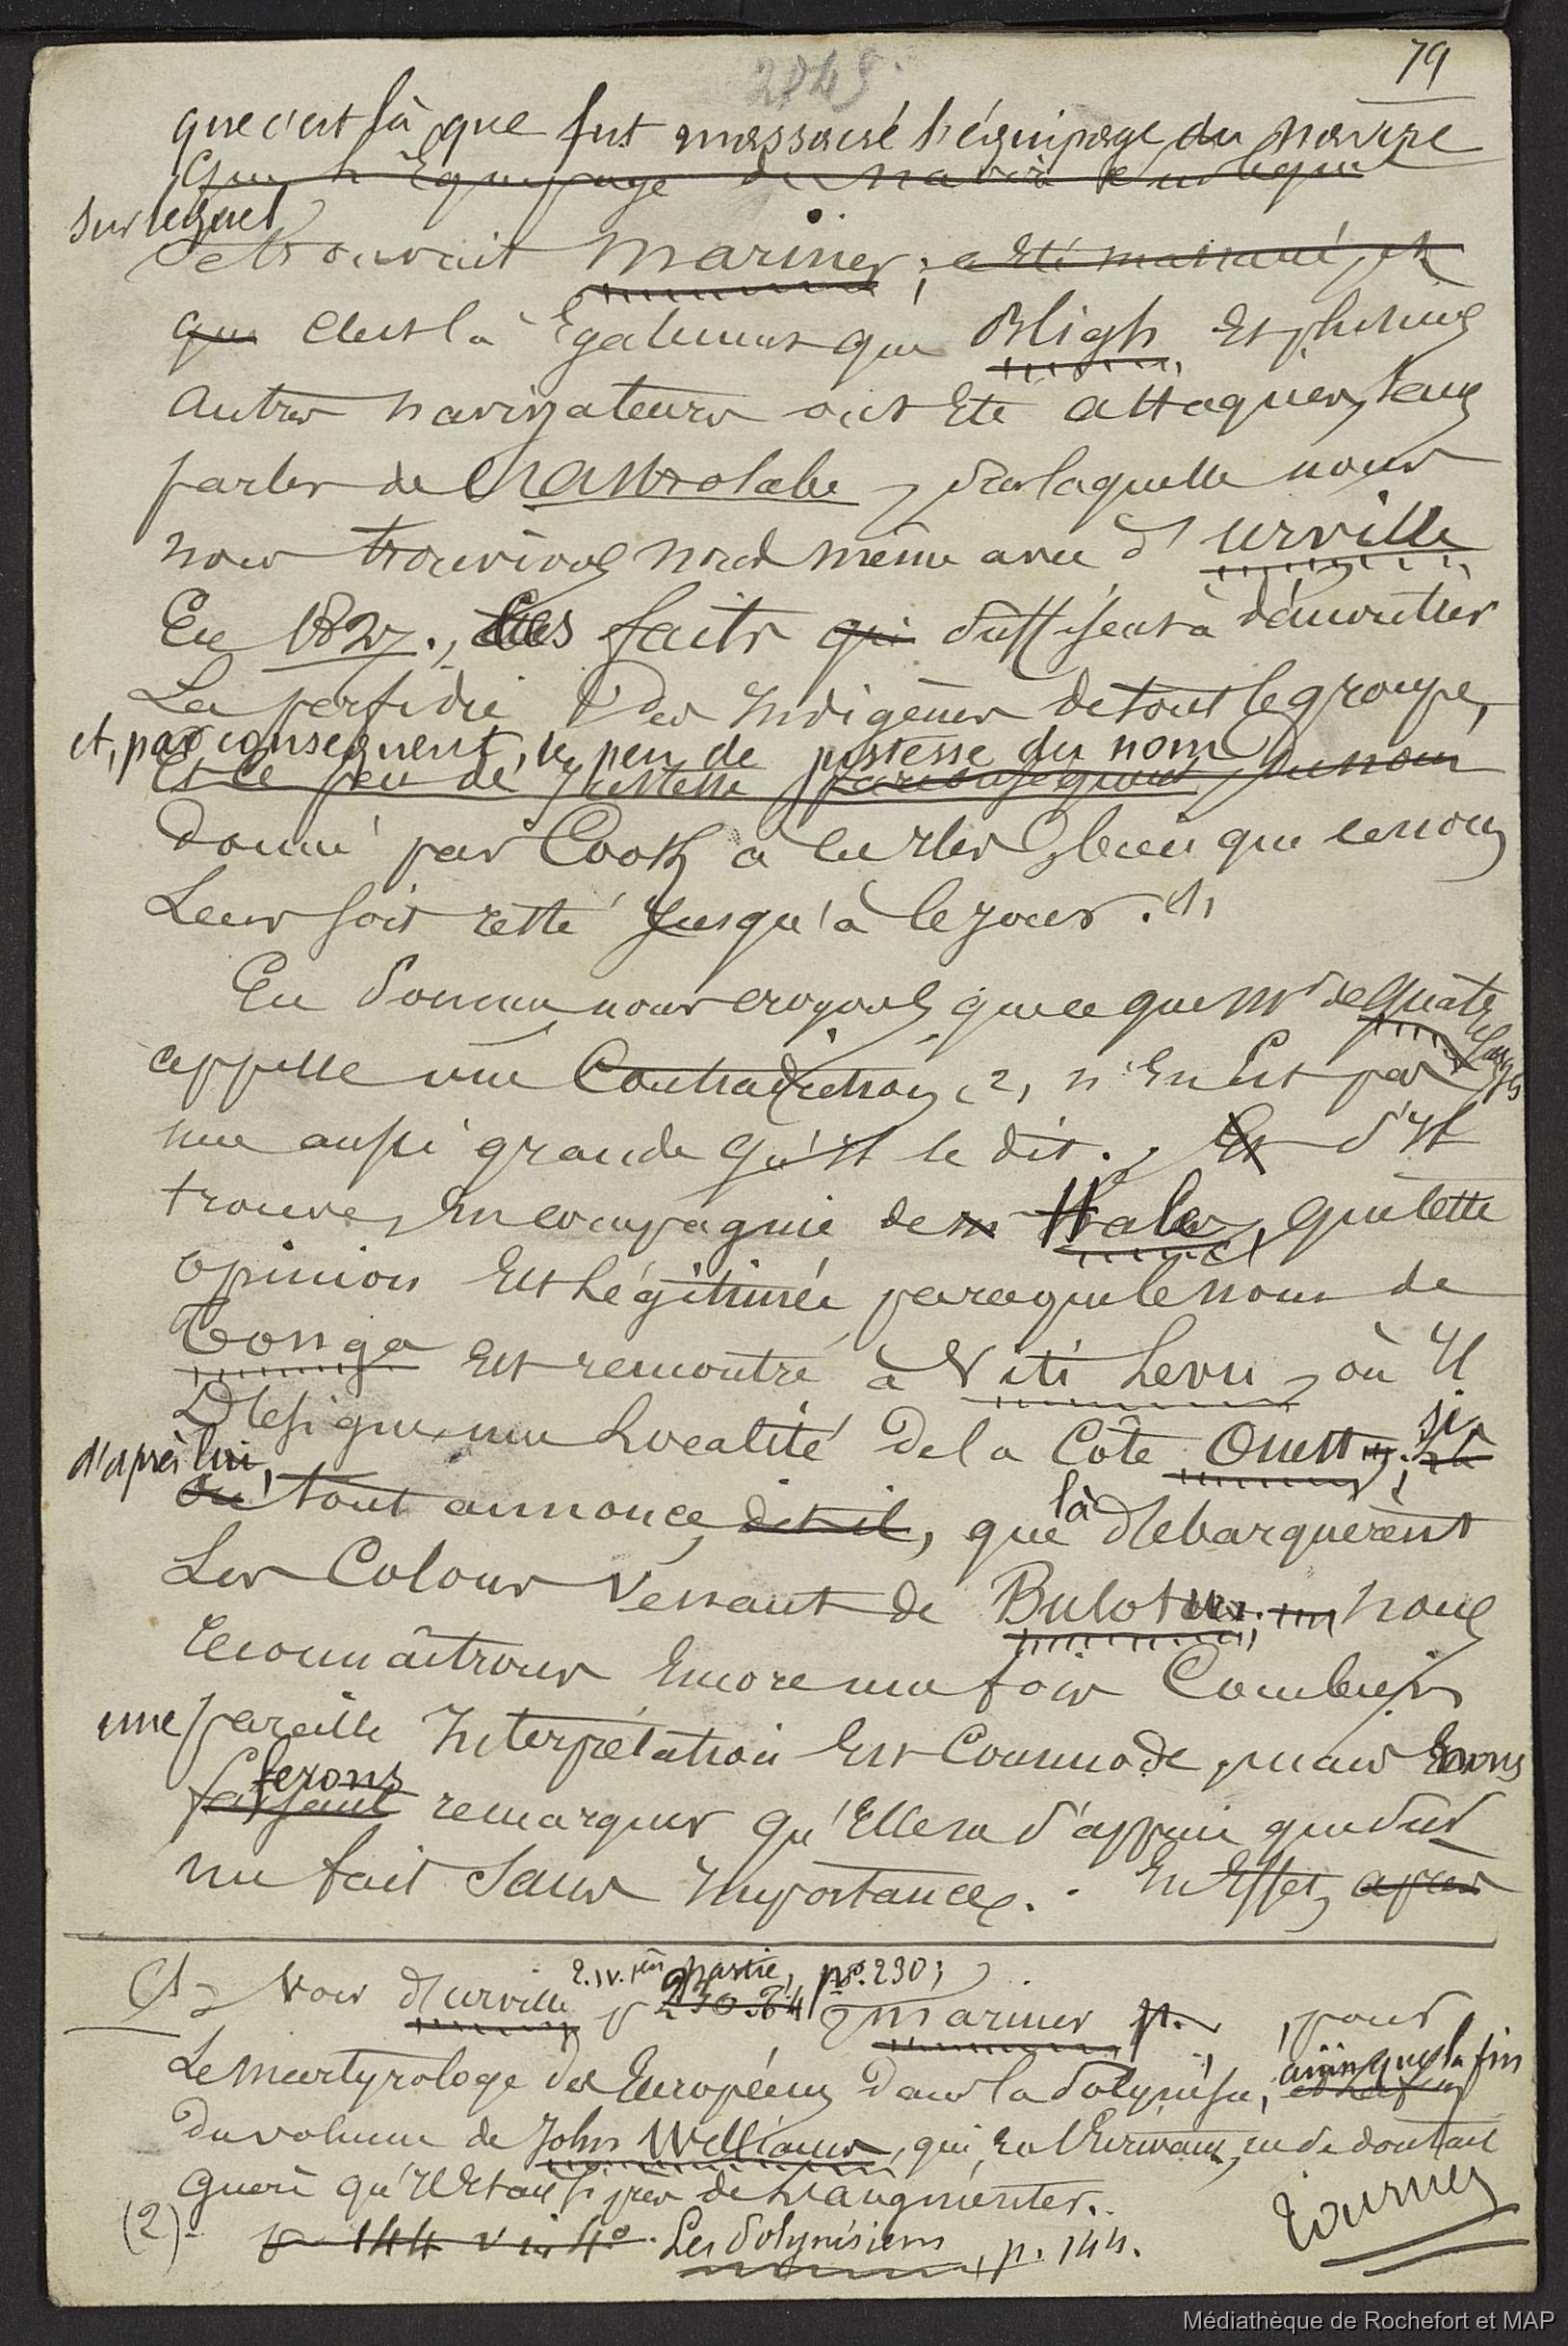 79
2849
que c'est là que fut massacré l'équipage du navire
que l'Équipage du navire sur lequel
sur lequel
se trouvait Mariner; a été massacré, et
que c'est là Également que Bligh Et plusieurs
autres navigateurs ont Été attaqués, sans
parler de L'Astrolabe, sur laquelle nous
nous trouvions nous même avec d'Urville
En 1827., Ces faits qui suffisent à démontrer
La perfidie Des Indigènes de tout le groupe,
et, par conséquent, le peu de justesse du nom
Et le peu de justesse par conséquent, du nom
Donné par Cook à ces Iles, bien que ce nom
Leur soit resté Jusqu'à ce jour. (1)
En somme, nous croyons que ce que Mr de Quatrefages
appelle une Contradiction (2) n'En Est pas
une aussi grande qu'Il le dit. Et s'Il
trouve, En compagnie de Hale, que cette
opinion Est Légitimée parceque le nom de
Tonga Est rencontré à Viti Levu, où Il
Désigne une Localité De la Côte Ouest; si
d'après lui,
où tout annonce, dit-il, que là débarquèrent
Les Colons Venant de Bulotu, nous
reconnaîtrons Encore une fois Combien
une pareille Interprétation Est Commode, mais nous
ferons
faisant remarquer qu'Elle ne s'appuie que sur
un fait Sans Importance. En Effet, après
(1) Voir d'Urville 2. IV. 1ère partie, p. 230; p 230. Mariner p. , pour
Le martyrologe des Européens Dans la Polynésie, ainsi que la fin
Du volume de John Williams, qui, En l'écrivant, ne se doutait
guère qu'Il Etait si près de L'augmenter.
(2) p 144 in 4° Les Polynésiens, p. 144.
Tournez
Médiathèque de Rochefort et MAP